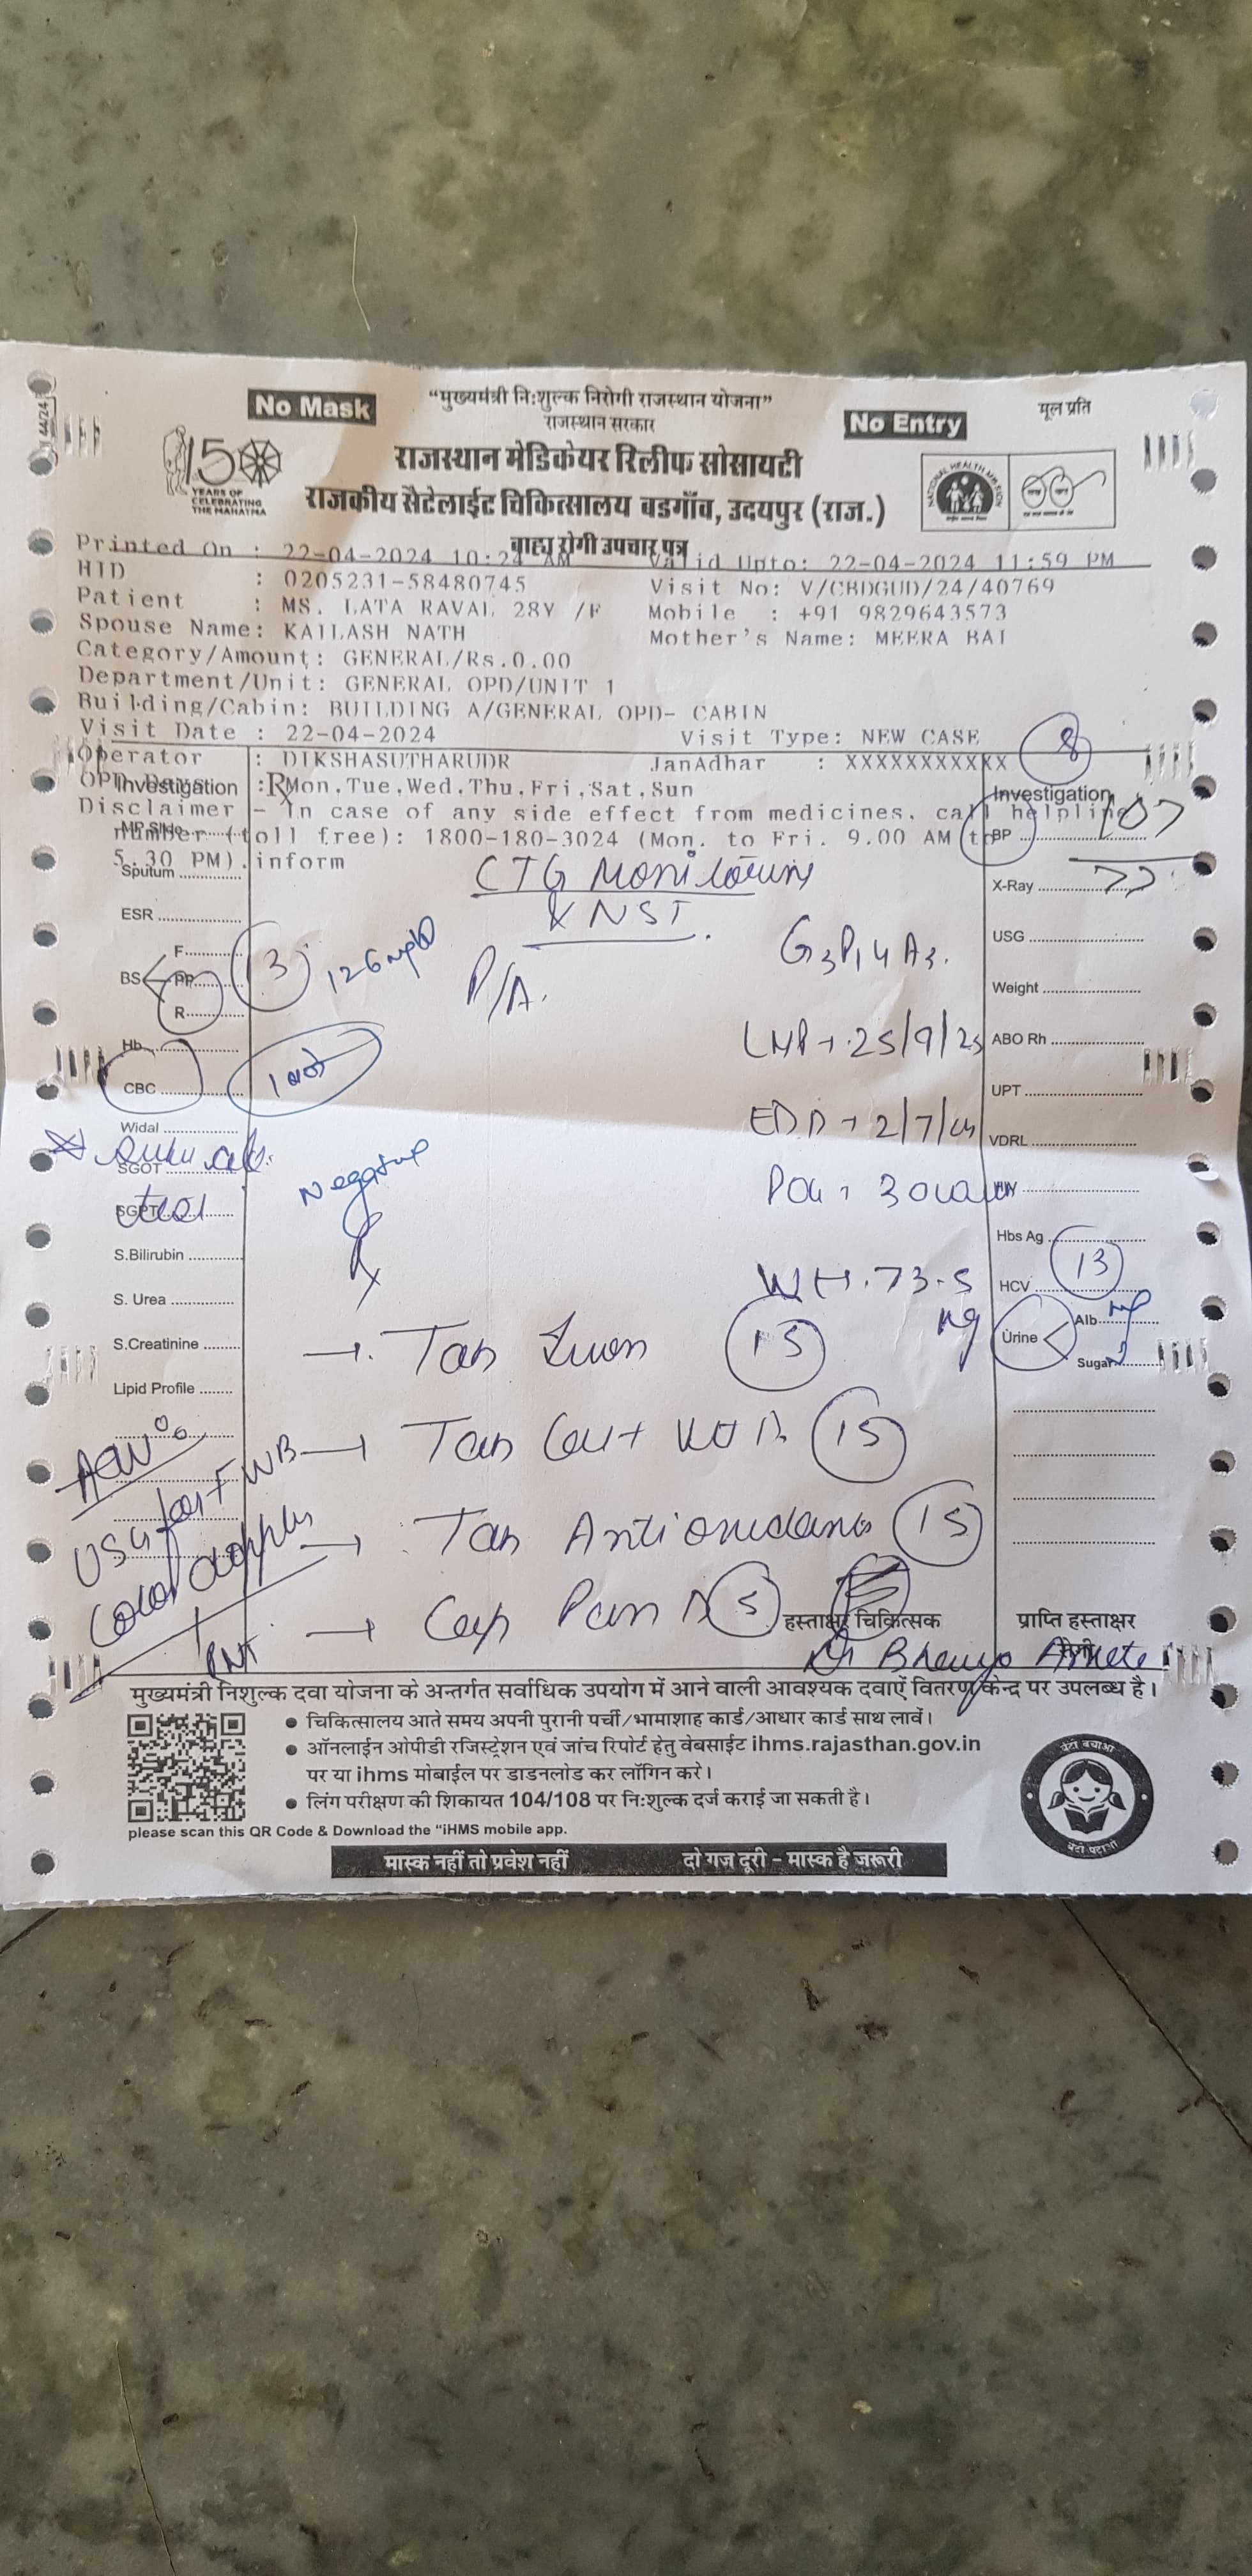 44/24
No Mask
"मुख्यमंत्री निःशुल्क निरोगी राजस्थान योजना"
राजस्थान सरकार
No Entry
मूल प्रति
150
YEARS OF
CELEBRATING
THE MAHATMA
राजस्थान मेडिकेयर रिलीफ सोसायटी
राजकीय सैटेलाईट चिकित्सालय बडगाँव, उदयपुर (राज.)
NATIONAL HEALTH MISSION
बाह्य रोगी उपचार पत्र
Printed On : 22-04-2024 10:24 AM Valid Upto: 22-04-2024 11:59 PM
HID : 0205231-58480745 Visit No: V/CBDGUD/24/40769
Patient : MS. LATA RAVAL 28Y /F Mobile : +91 9829643573
Spouse Name: KAILASH NATH Mother's Name: MEERA BAI
Category/Amount: GENERAL/Rs.0.00
Department/Unit: GENERAL OPD/UNIT 1
Building/Cabin: BUILDING A/GENERAL OPD- CABIN
Visit Date : 22-04-2024 Visit Type: NEW CASE
8
Operator : DIKSHASUTHARUDR JanAdhar : XXXXXXXXXXX
OPD Days : Mon,Tue,Wed,Thu,Fri,Sat,Sun
Investigation R Investigation
Disclaimer - In case of any side effect from medicines, call helpline
number (toll free): 1800-180-3024 (Mon. to Fri. 9.00 AM to
5.30 PM).inform
MP Slide
BP 107
77
Sputum
CTG Monitoring
X-Ray
& NST
ESR
USG
G3P1L1A3.
F
BS PP 13 126 mg/dl
R
P/A.
Weight
Hb
LMP → 25/9/23
ABO Rh
CBC
UPT
Widal
EDD → 2/7/24
VDRL
SGOT
Negative
SGPT
POG
HIV
S.Bilirubin
Hbs Ag
13
HCV
Wt. 73.5
kg
S. Urea
Urine Alb
Sugar
S.Creatinine
→ Tab 15
Lipid Profile
→ Tab 15
Adv
USG for FWB
Color doppler
→ Tab Antioxidants 15
→ Cap Pan D 5
हस्ताक्षर चिकित्सक
प्राप्ति हस्ताक्षर
मुख्यमंत्री निशुल्क दवा योजना के अन्तर्गत सर्वाधिक उपयोग में आने वाली आवश्यक दवाऐं वितरण केन्द्र पर उपलब्ध है।
• चिकित्सालय आते समय अपनी पुरानी पर्ची/भामाशाह कार्ड/आधार कार्ड साथ लावें।
• ऑनलाईन ओपीडी रजिस्ट्रेशन एवं जांच रिपोर्ट हेतु वेबसाईट ihms.rajasthan.gov.in
पर या ihms मोबाईल पर डाडनलोड कर लॉगिन करे।
• लिंग परीक्षण की शिकायत 104/108 पर निःशुल्क दर्ज कराई जा सकती है।
please scan this QR Code & Download the "iHMS mobile app.
बेटी बचाओ
बेटी पढ़ाओ
मास्क नहीं तो प्रवेश नहीं
दो गज दूरी - मास्क है जरूरी